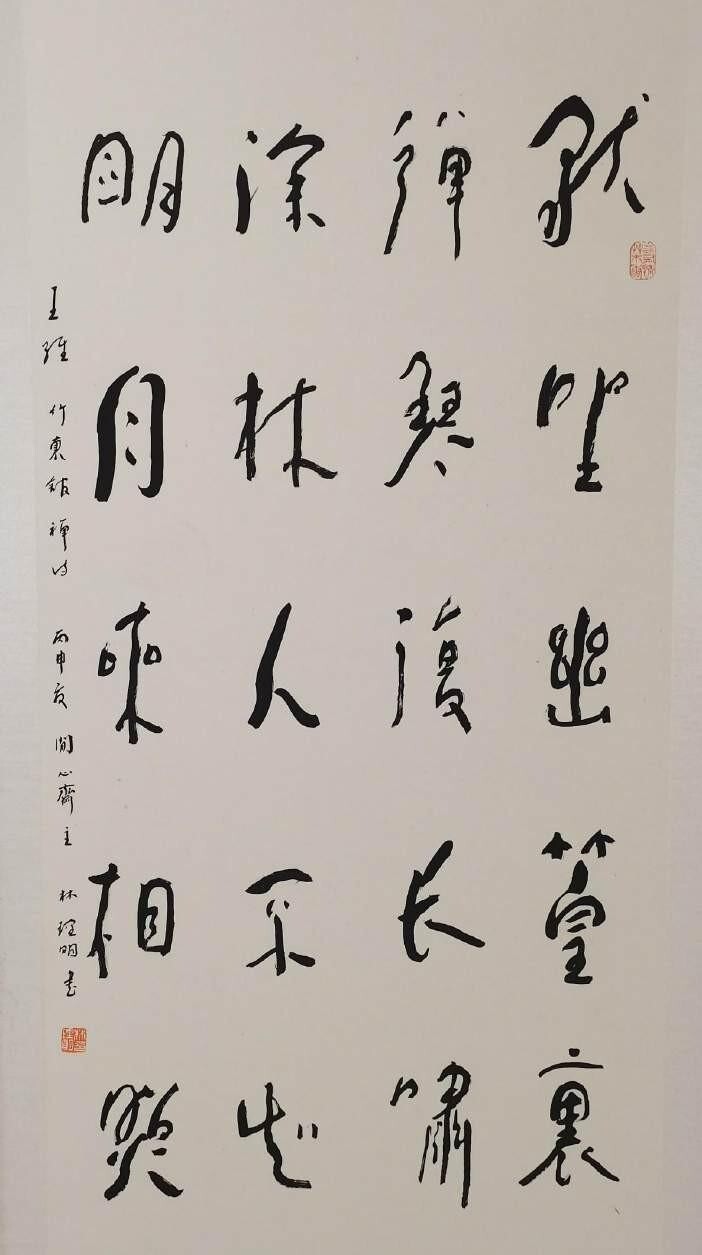 坐幽篁裏
彈琴復长嘯
深林人不知
明月來相照
王維 竹裏館 禅诗 丙申夏 閒心齋主 林 明书